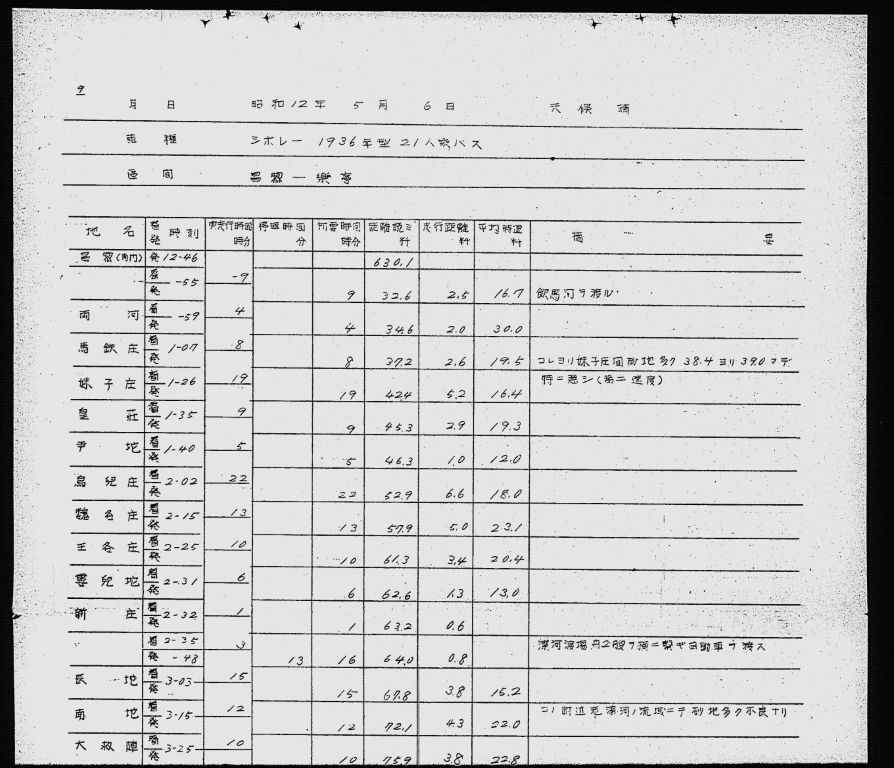 9
月 日 昭和12年 5月 6日 天候 晴
車種 シボレー 1936年型 21人乗バス
区間 昌黎―楽亭
地名 着発 時刻 実走行時間 時分 停車時間 分 所要時間 時分 距離読ミ 粁 走行距離 粁 平均時速 粁 摘要
昌黎(南門) 発 12-46 630.1
着発 -55 -9 9 32.6 2.5 16.7 飲馬河ヲ渡ル
両河 着発 -59 4 4 34.6 2.0 30.0
馬鉄庄 着発 1-07 8 8 37.2 2.6 19.5 コレヨリ妹子庄間砂地多ク 38.4ヨリ39.0マデ
特ニ悪シ(第二速度)
妹子庄 着発 1-26 19 19 42.4 5.2 16.4
皇莊 着発 1-35 9 9 45.3 2.9 19.3
尹坨 着発 1-40 5 5 46.3 1.0 12.0
烏兒庄 着発 2-02 22 22 52.9 6.6 18.0
魏各庄 着発 2-15 13 13 57.9 5.0 23.1
王各庄 着発 2-25 10 10 61.3 3.4 20.4
兒坨 着発 2-31 6 6 62.6 1.3 13.0
新庄 着発 2-32 1 1 63.2 0.6
着 2-35 3 灤河渡場舟2艘ヲ横ニ繋ギ自動車ヲ渡ス
発 -48 13 16 64.0 0.8
長坨 着発 3-03 15 15 67.8 3.8 15.2
南坨 着発 3-15 12 12 72.1 4.3 22.0 コノ附近灤河ノ流域ニテ砂地多ク不良ナリ
大叔陣 着発 3-25 10 10 75.9 3.8 22.8